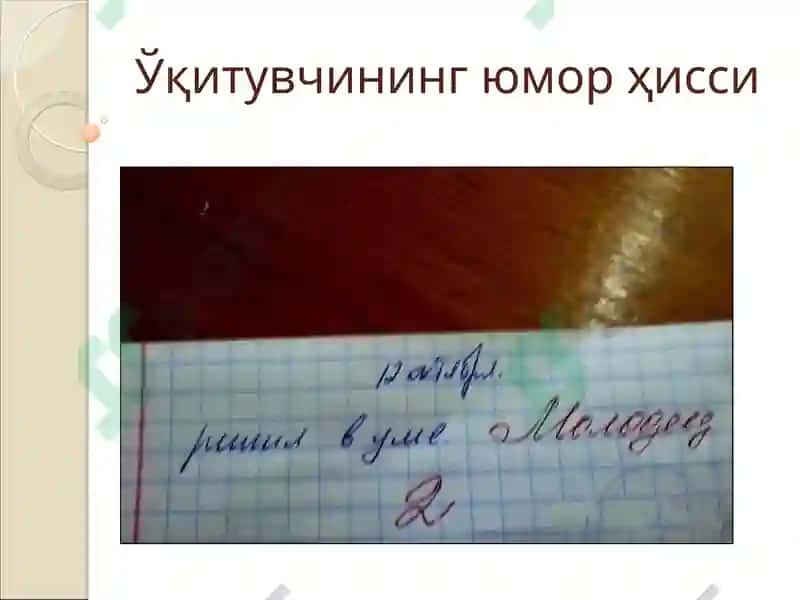 Ўқитувчининг юмор ҳисси
12 октября.
решил в уме Молодец
2